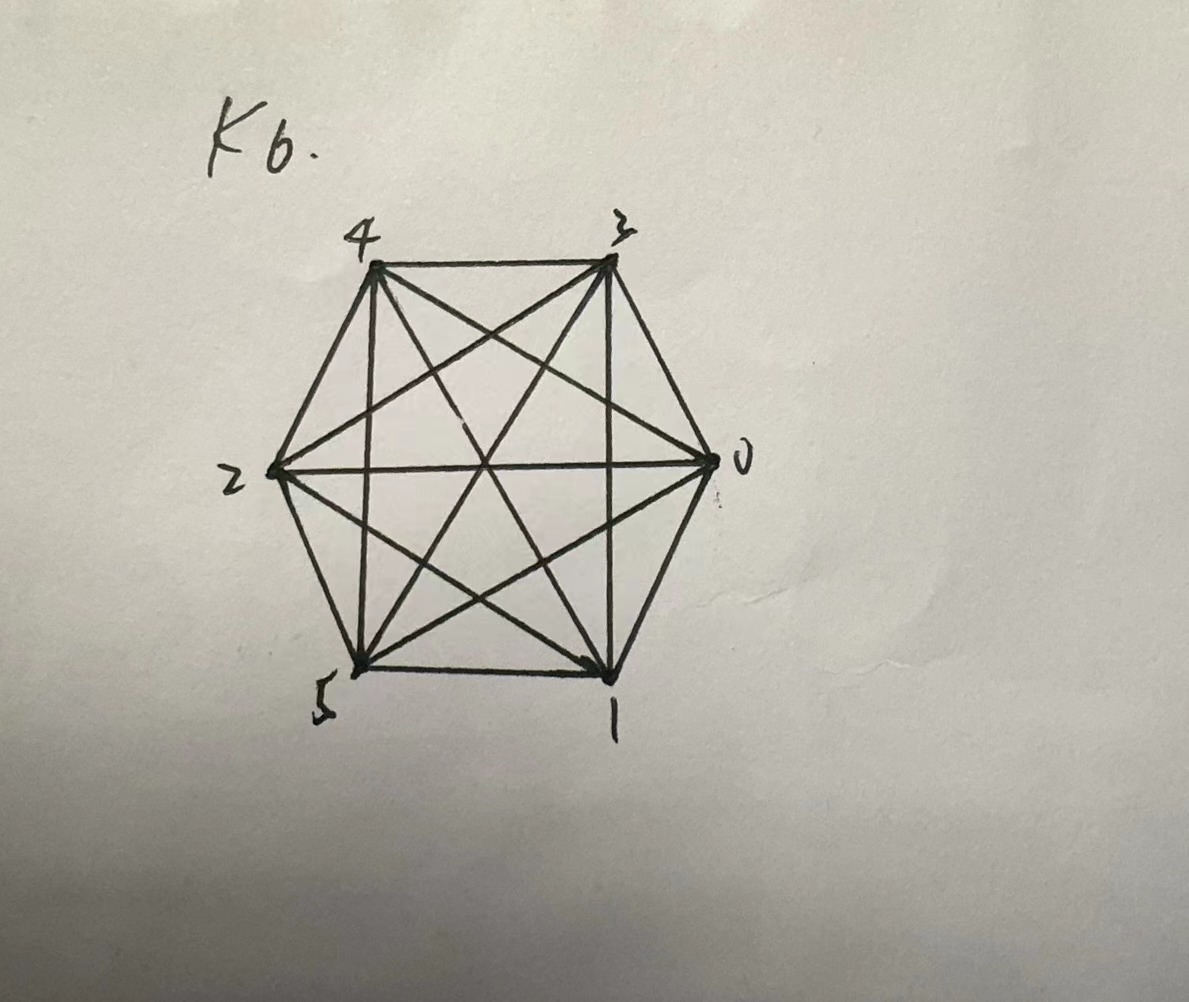 K6.
4 3
2 0
5 1